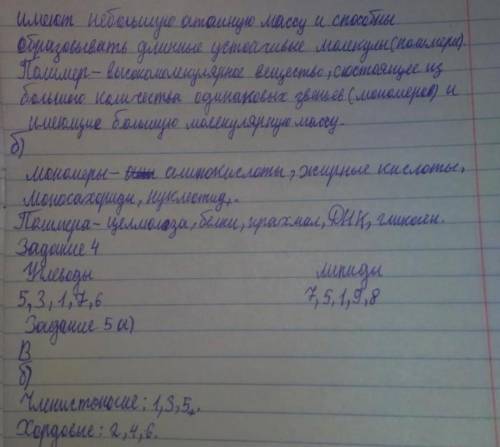 имеют небольшую атомную массу и способны
образовывать длинные устойчивые молекулы (полимеры).
Полимер – высокомолекулярное вещество, состоящее из
большого количества одинаковых звеньев (мономеров) и
имеющие большую молекулярную массу.
б)
мономеры – аминокислоты, жирные кислоты,
моносахариды, нуклеотид.
Полимера – целлюлоза, белки, крахмал, ДНК, гликоген.
Задание 4
Углеводы липиды
5, 3, 1, 7, 6 7, 5, 1, 9, 8
Задание 5 а)
В
б)
Членистоногие: 1, 3, 5.
Хордовые: 2, 4, 6.